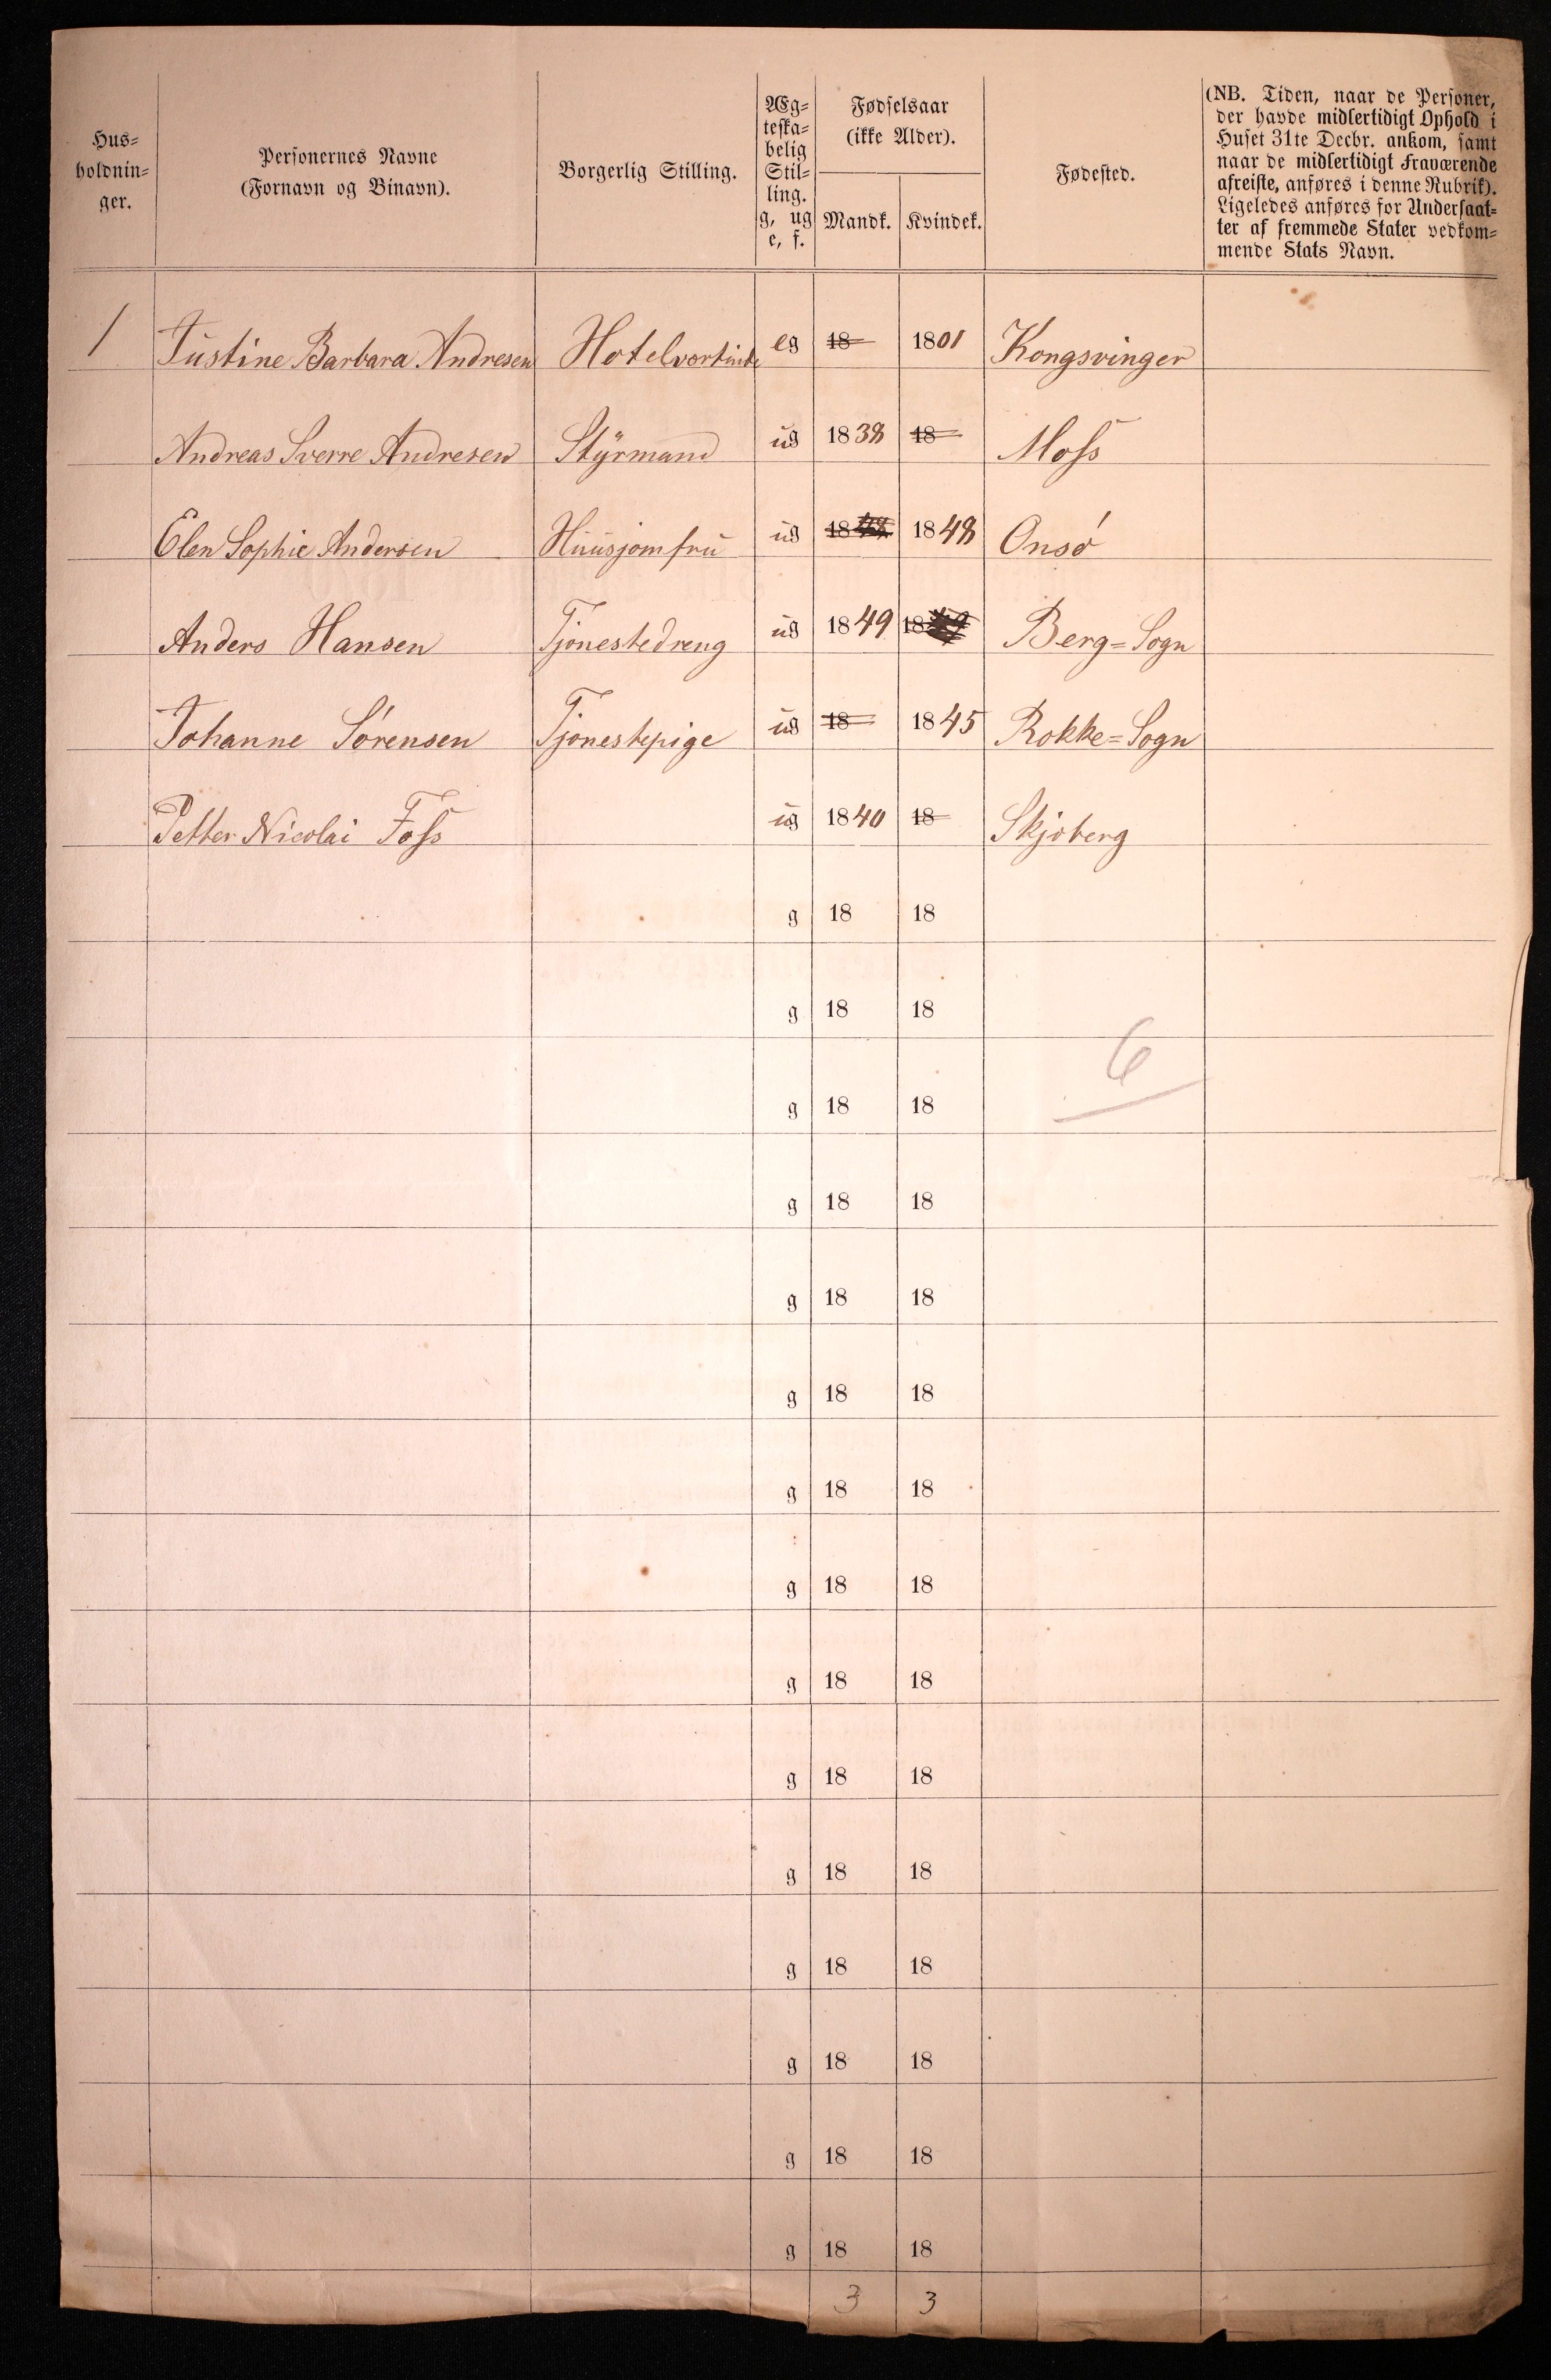 Hus=
holdnin=
ger.
Personernes Navne
(Fornavn og Binavn).
Borgerlig Stilling.
Æg=
teska=
belig
Stil=
ling.
g, ug
e, f.
Fødselsaar
(ikke Alder).
Mandk. Kvindek.
Fødested.
(NB. Tiden, naar de Personer,
der havde midlertidigt Ophold i
Huset 31te Decbr. ankom, samt
naar de midlertidigt Fraværende
afreiste, anføres i denne Rubrik).
Ligeledes anføres for Undersaat=
ter af fremmede Stater vedkom=
mende Stats Navn.
1 Justine Barbara Andresen Hotelvertinde eg 18 1801 Kongsvinger
Andreas Sverre Andresen Styrmand ug 1838 18 Moss
Elen Sophie Andersen Huusjomfru ug 1848 1848 Onsö
Anders Hansen Tjönestedreng ug 1849 1849 Berg=Sogn
Johanne Sörensen Tjönestepige ug 18 1845 Rokke=Sogn
Petter Nicolai Foss ug 1840 18 Skjoberg
g 18 18
g 18 18
6
g 18 18
g 18 18
g 18 18
g 18 18
g 18 18
g 18 18
g 18 18
g 18 18
g 18 18
g 18 18
g 18 18
g 18 18
g 18 18
3 3